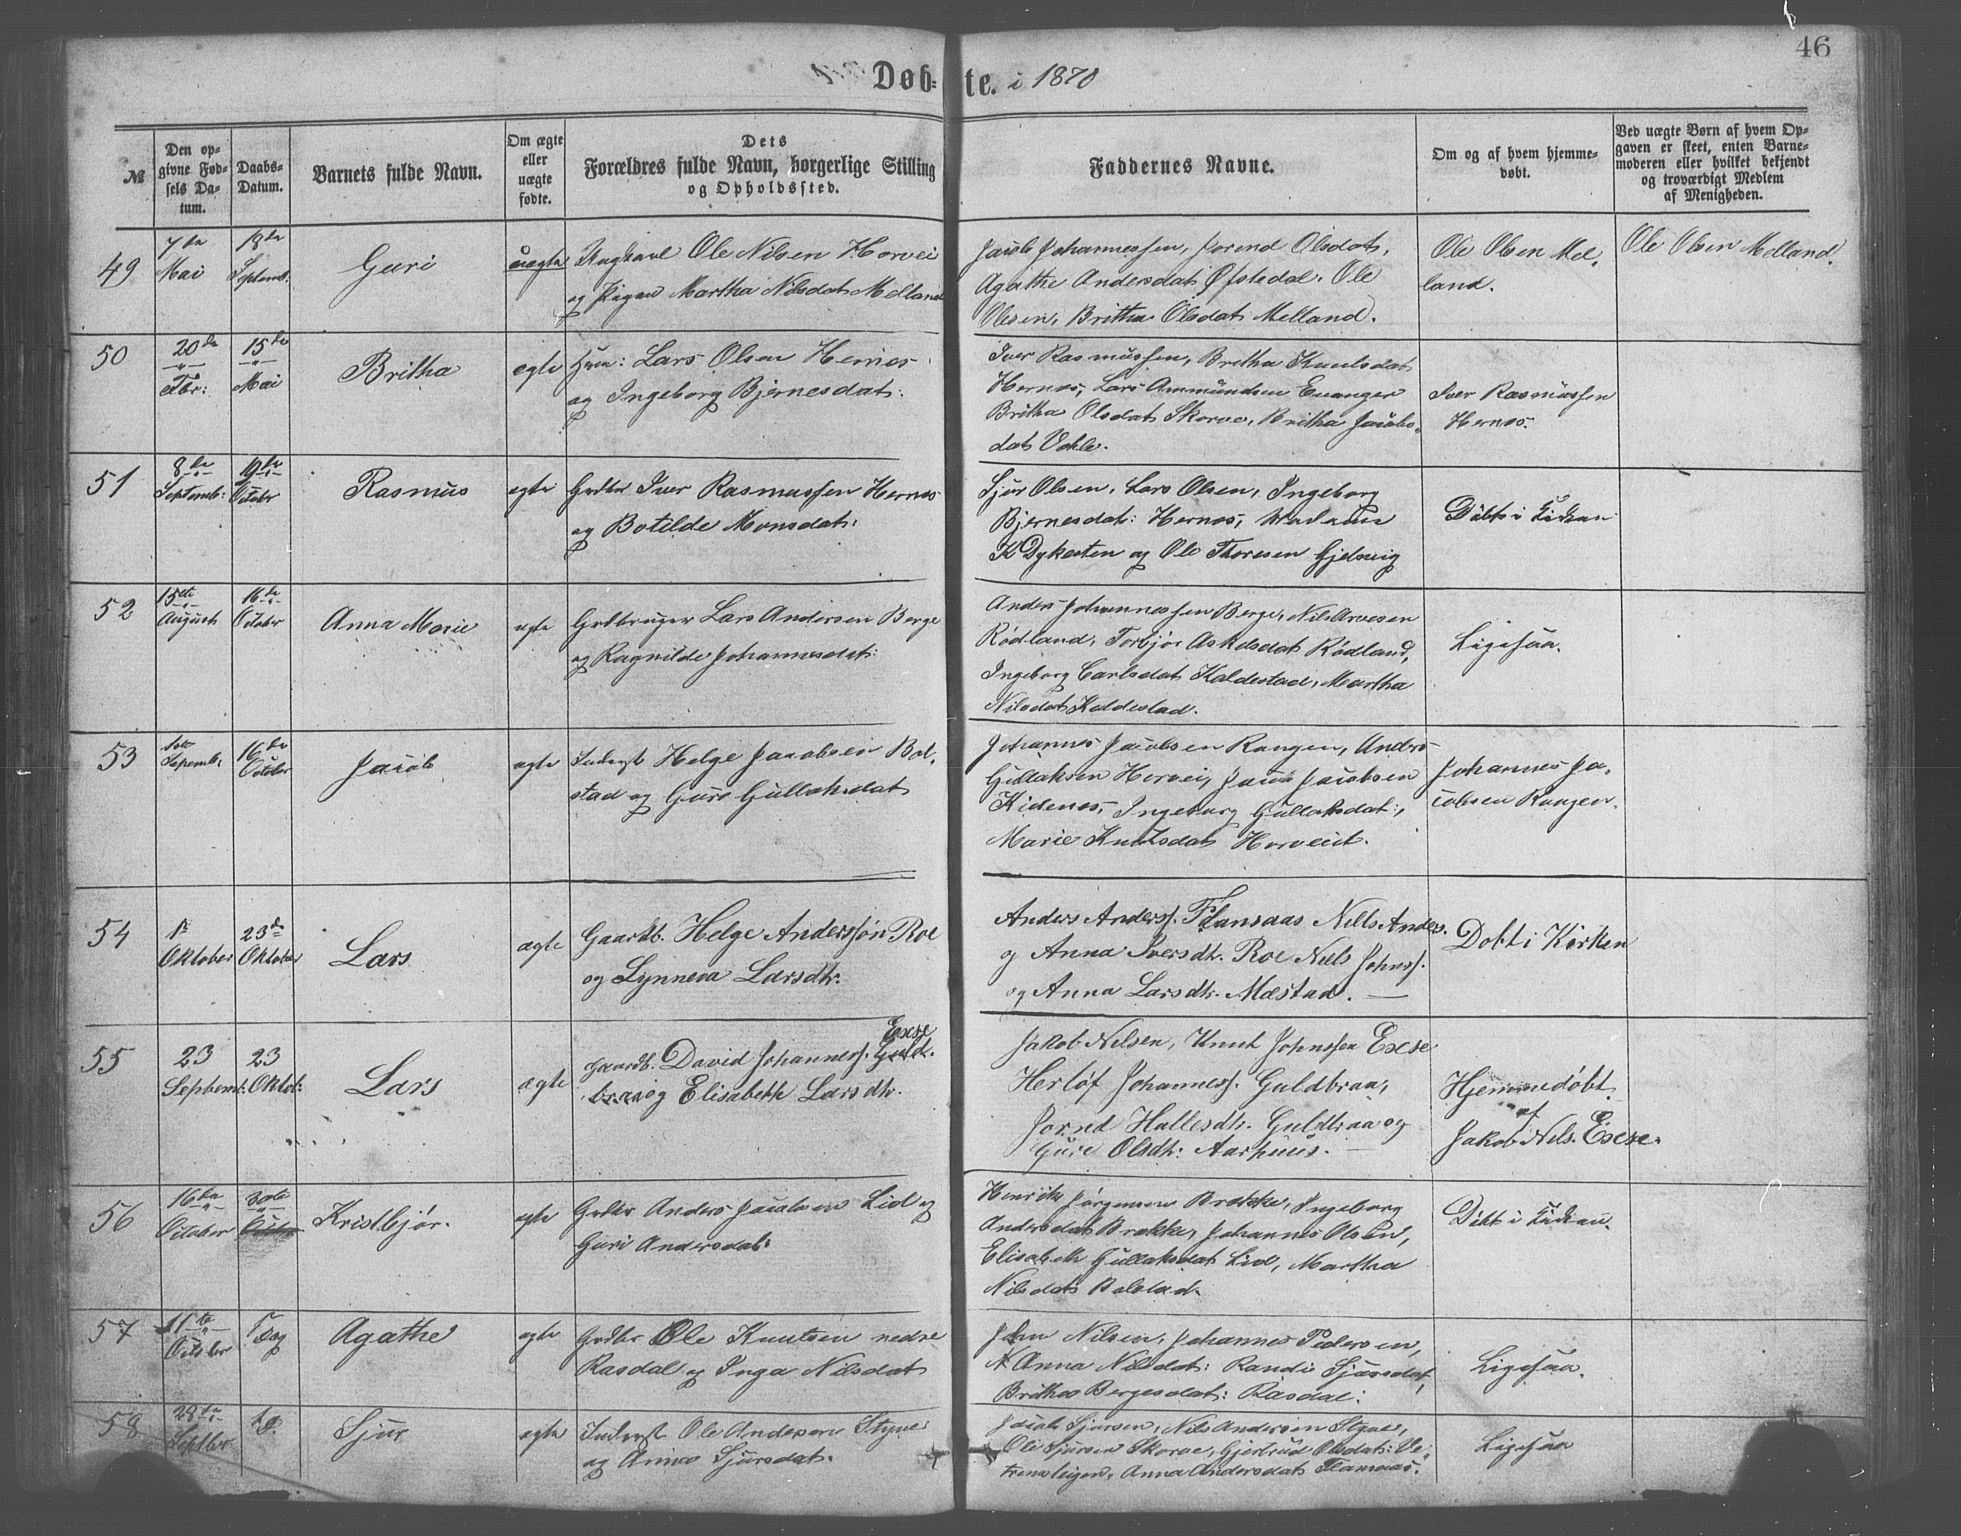 46
Døb=te. i 1870
№
Den op=
givne Fød=
sels Da=
tum.
Daabs=
Datum.
Barnets fulde Navn.
Om ægte
eller
uægte
fødte.
Dets
Forældres fulde Navn, borgerlige Stilling
og Opholdssted.
Faddernes Navne.
Om og af hvem hjemme=
døbt.
Ved uægte Børn af hvem Op=
gaven er skeet, enten Barne=
moderen eller hvilket bekjendt
og troværdigt Medlem
af Menigheden.
49
7de
Mai
18de
Septemb:
Guri
uægte
Ungkarl Ole Nilsen Horvei
og Pigen Martha Nilsdat Melland
Jacob Johannessen, Jorend Olsdat,
Agathe Andersdat Øfstedal, Ole
Olsen, Britha Olsdat Melland.
Ole Olsen Mel.
land.
Ole Olsen Melland.
50
20de
Fbr:
15de
Mai
Britha
egte
Huu: Lars Olsen Hernes
og Ingeborg Bjernesdat:
Iver Rasmussen, Britha Knutsdat
Hernes, Lars Ammundsen Evanger
Britha Olsdat Skorve, Britha Jacobs.
dat Vehle.
Iver Rasmussen
Hernes.
51
8de
Septemb:
19de
October
Rasmus
egte
Grdbr Iver Rasmussen Hernes
og Botilde Monsdat:
Sjur Olsen, Lars Olsen, Ingeborg
Bjernesdat: Hernes, Madame
K Dykesten og Ole Thoresen Gjelsvig
Døbt i Kirken
52
15de
August
16de
October
Anna Marie
egte
Grdbruger Lars Andersen Berge
og Ragnilde Johannesdat:
Anders Johannessen Berge, Nils Arvesen
Rødland, Torbjør Askelsdat Rødland,
Ingeborg Carlsdat Kaldestad, Martha
Nilsdat Kaldestad.
Ligesaa.
53
1ste
Septemb:
16de
October
Jacob
egte
Inderst Helge Jacobsen Bol.
stad og Guro Gullaksdat
Johannes Jacobsen Rangen, Anders
Gullaksen Horvei, Jacob Jacobsen
Kidenes, Ingeborg Gullaksdat:,
Marie Knutsdat Horveit.
Johannes Ja.
cobsen Rangen.
54
1
Oktober
23de
Oktober
Lars
ægte
Gaardb. Helge Anderssøn Roe
og Synneva Larsdtr:
Anders Anderss. Flamsaas Nils Anders.
og Anna Iversdtr. Roe Niels Johnss.
og Anna Larsdtr. Mæstad. —
Døbt i Kirken
55
23
Septemb:
23
Oktob:
Lars
ægte
Gaardb. David Johanness. Guld.
Exse
braa og Elisabeth Larsdtr.
Jakob Nilsen, Knut Johnssen Exse
Herløf Johanness. Guldbraa,
Jornd Hallesdtr. Guldbraa og
Guri Olsdtr: Aarhuus. —
Hjemmedøbt
af
Jakob Nils. Exse.
56
16de
October
30te
October
Kristbjør.
egte
Grdbr Anders Jacobsen Lid og
Guri Andersdat:
Henrik Jørgensen Brække, Ingeborg
Andersdat Brække, Johannes Olsen,
Elisabeth Gullaksdat Lid, Martha
Nilsdat Bolstad.
Døbt i Kirken.
57
11te
October
S Dag
Agathe
egte
Grdbr Ole Knutsen nedre
Rasdal og Inga Nilsdat
John Nilsen, Johannes Pedersen,
Anna Nilsdat: Randi Sjursdat,
Britha Bergesdat: Rasdal:
Ligesaa.
58
28de
Septbr
Sjur
egte
Inderst Ole Andersen Styve
og Anna Sjursdat.
Jacob Sjursen, Nils Andersen Styve,
Ole Sjursen Skorve, Gjertrud Olsdat:
Anna Andersdat Flamsaas.
Ligesaa